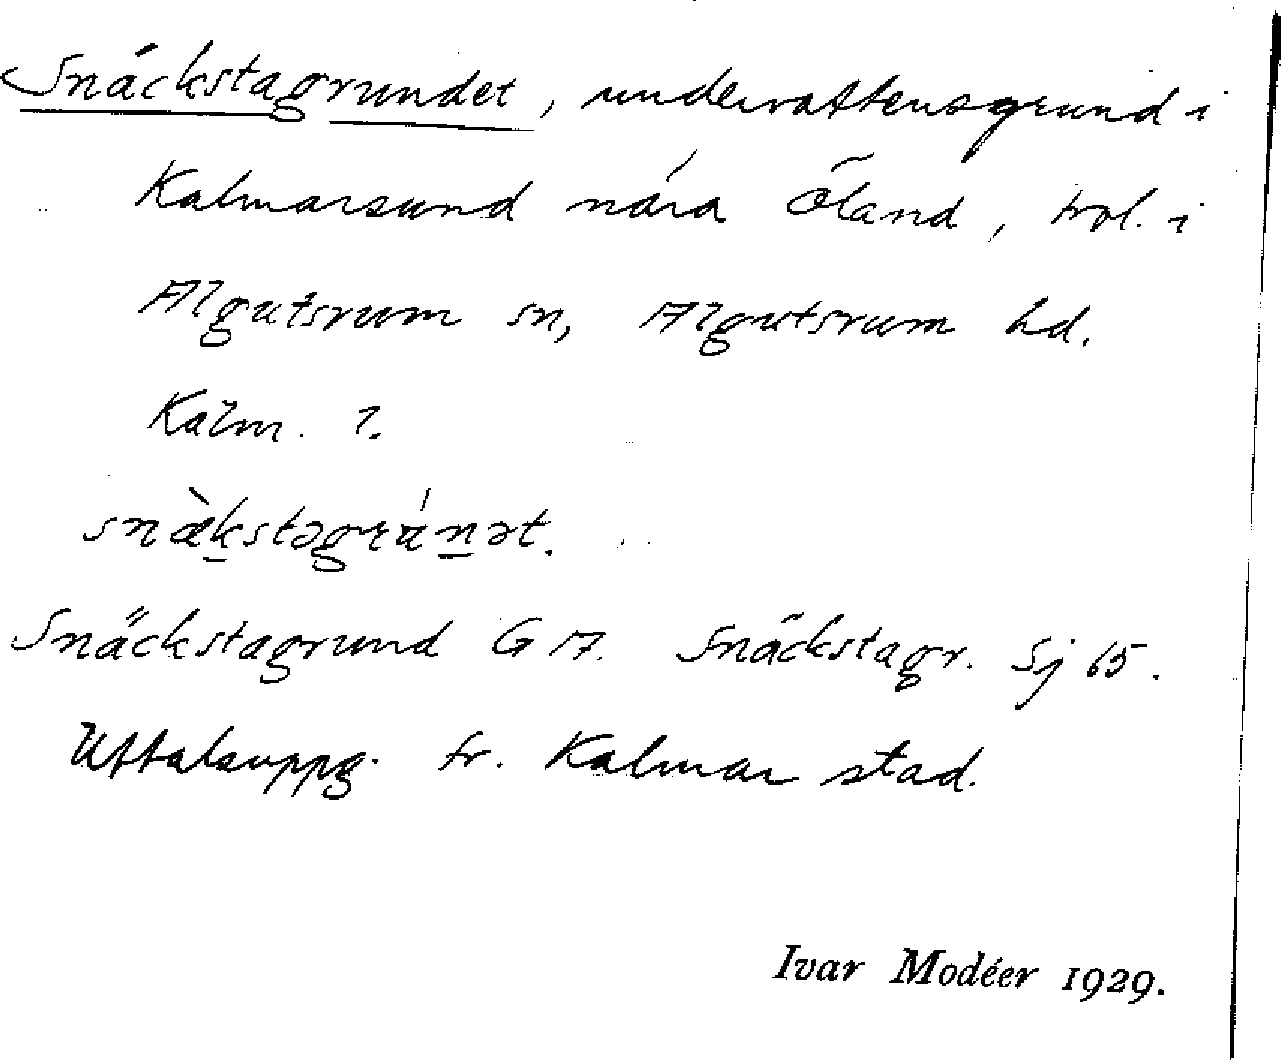 Snäckstagrundet, undervattensgrund i
Kalmarsund nära Öland, trol. i
Algutsrum sn, Algutsrum hd.
Kalm. ?.
snæ̀kstəgrúnət.
Snäckstagrund G A. Snäckstagr. Sj 65.
Uttalsuppg. fr. Kalmar stad.
Ivar Modéer 1929.